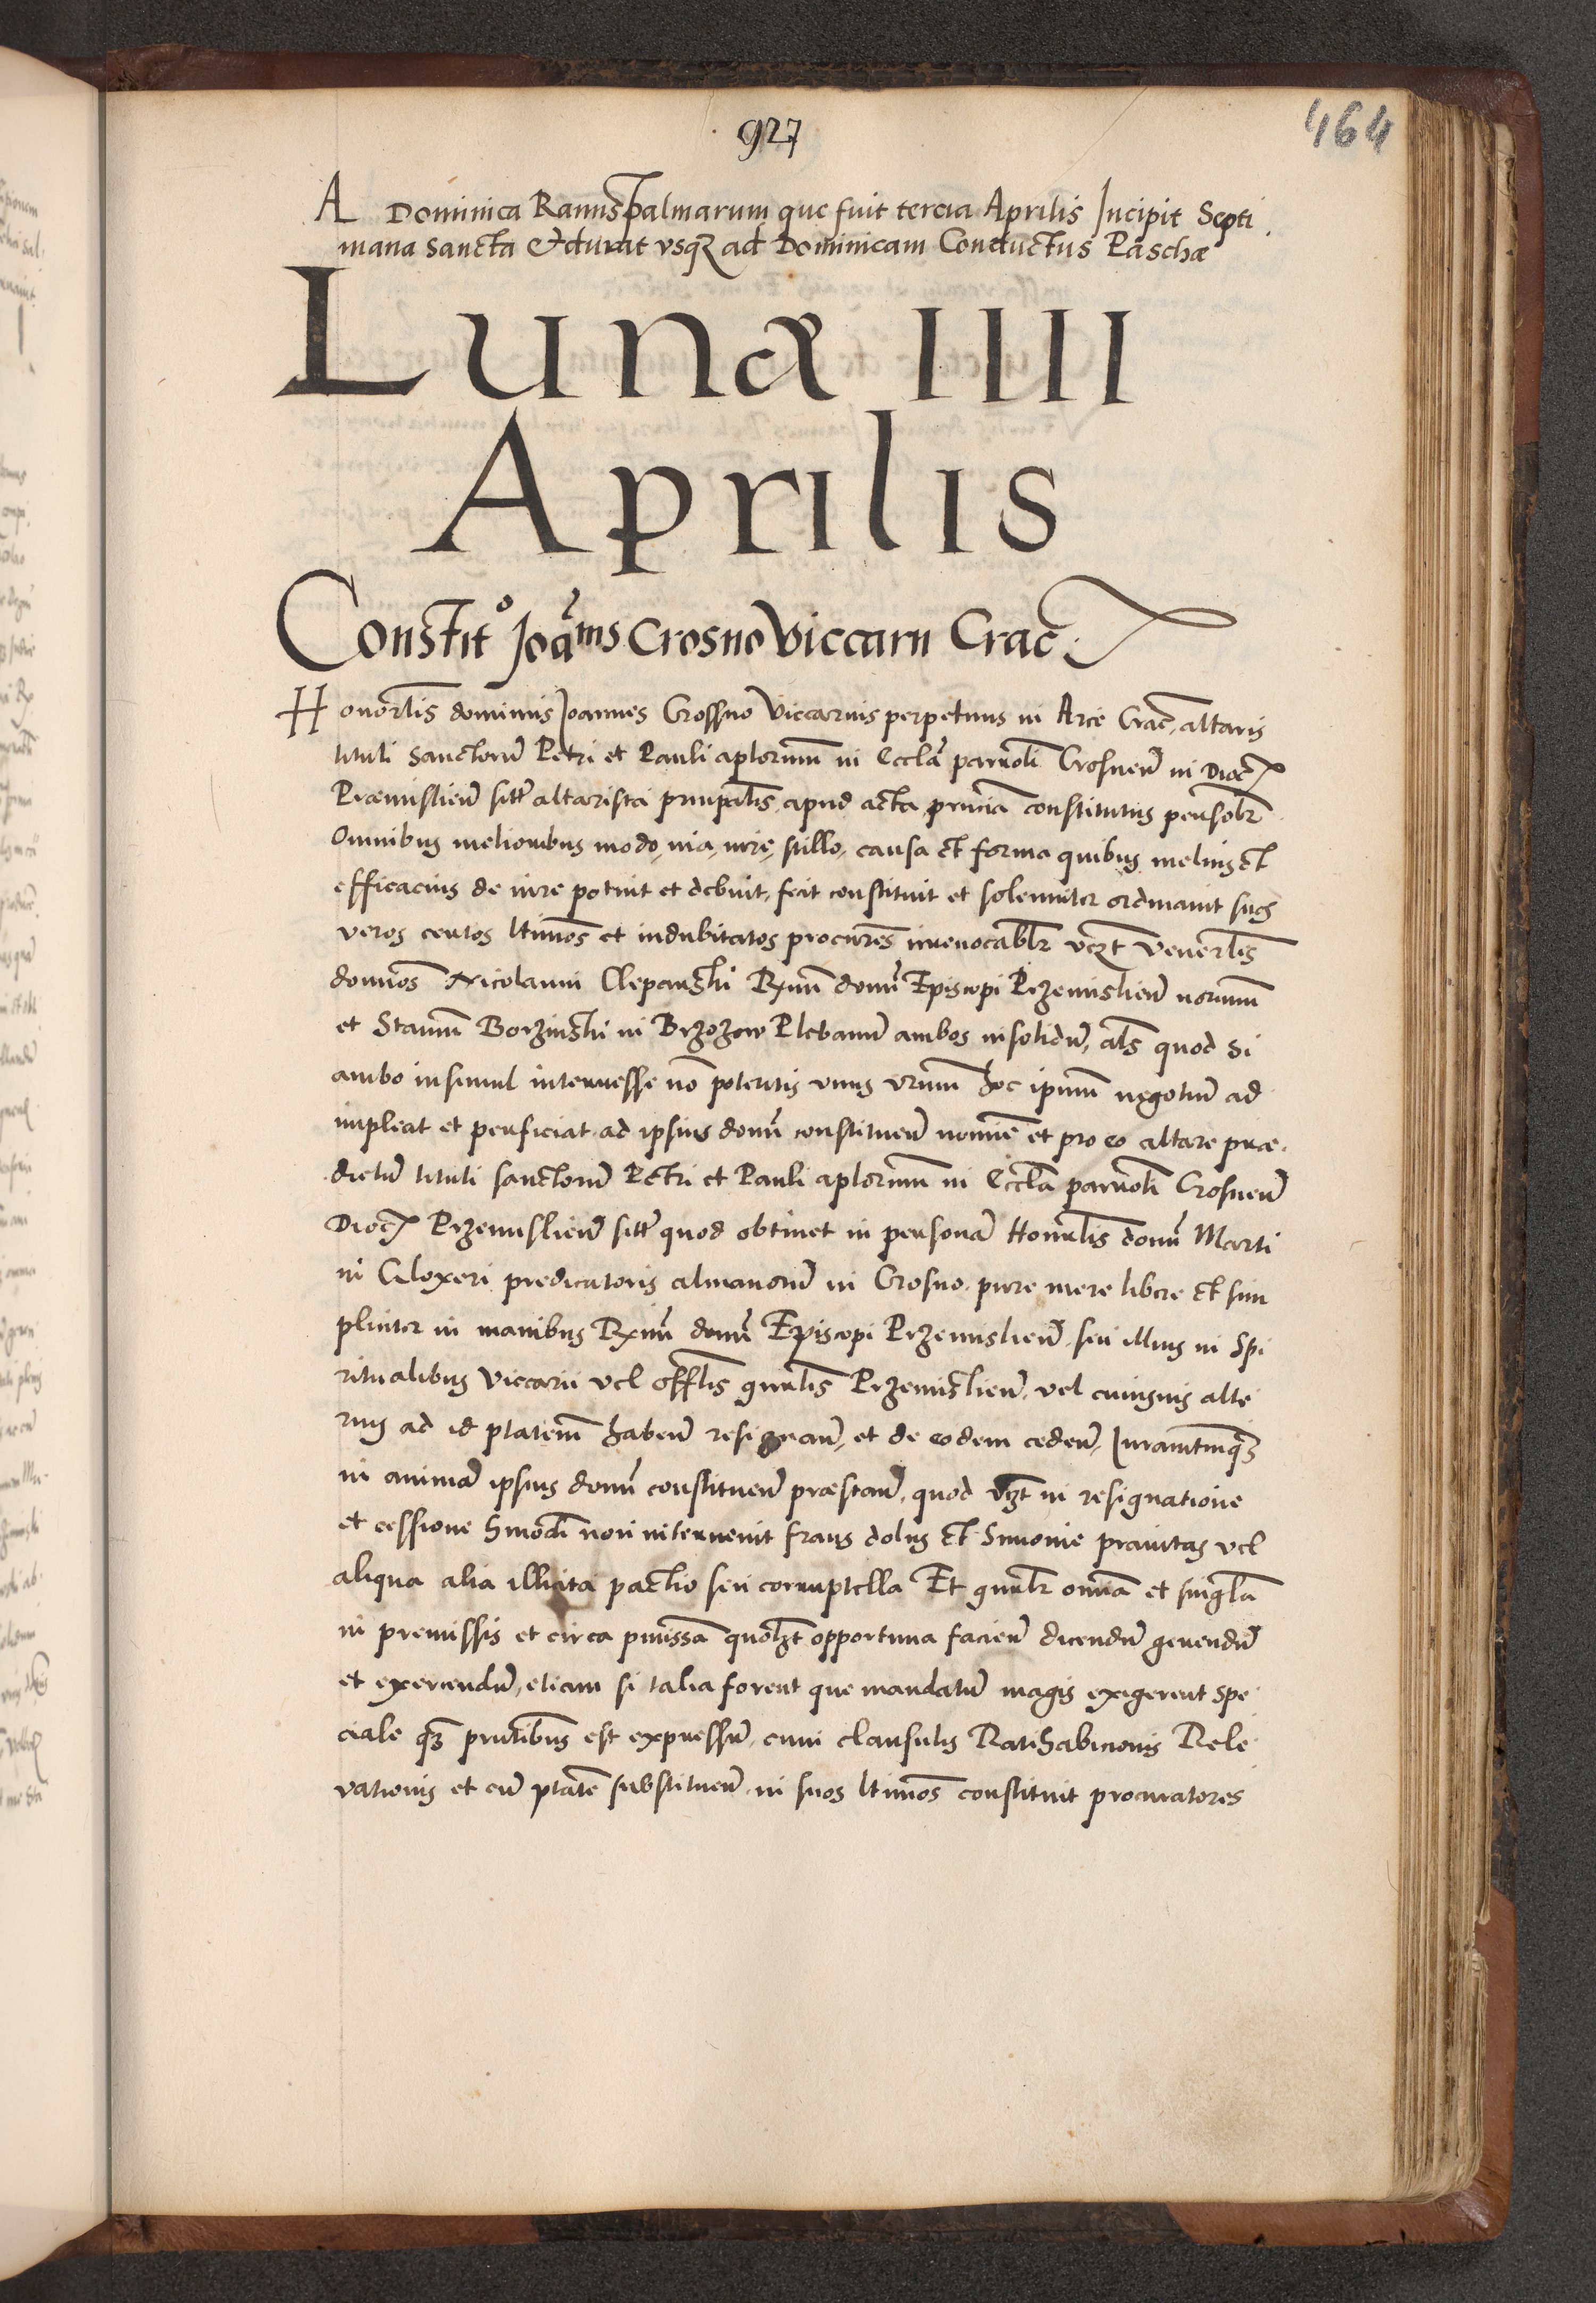 927
464
A Dominica Ramispalmarum que fuit tercia Aprilis Incipit Septi
mana sancta & durat vsq3 ad Dominicam Conductus Paschæ
Lunæ IIII
Aprilis
Constitº Joãnis Crosno Viccarii Crac̃
Honorlis dominus Joannes Crossno Viccarius perpetuus in Arce Crac̃, altaris
tituli sanctorũ Petri et Pauli aplorum in Eccla parroli Crosneñ in Dioc̃
Præmislieñ sitt altarista prinpalis apud acta prncia constitutus personlr
Omnibus melioribus modo, via, iure, stillo, causa et forma quibus melius et
efficacius de iure potuit et debuit, fecit constituit et solemniter ordinavit suos
veros certos ltimos et indubitatos procures irrevocablr vczt Venerlis
dominos Nicolaum Cleparzki Rxmi domi Episcopi Przemislieñ norium
et Stanm Borzinski in Brzozow Plebanũ ambos insolidũ, als quod si
ambo insimul interresse no poteritis unus vrum hoc ipsum negotiũ ad
impleat et perficiat ad ipsius domi constitueñ nomine et pro eo altare præ
dictũ tituli sanctorũ Petri et Pauli aplorum in Eccla parroli Crosneñ
Dioc̃ Przemislieñ sitt quod obtinet in personã Honorlis domi Marti
ni Gloxeri predicatoris almanorũ in Crosno pure mere libere et sim
pliciter in manibus Rxmi domi Episcopi Przemislieñ seu illius in Spi
ritualibus Viccarii vel offlis gnralis Przemislieñ, vel cuiusuis alte
rius ad id ptatem habeñ resignañ, et de eodem cedeñ, Juramtmq3
in animã ipsius domi constitueñ præstañ, quod vczt in resignatione
et cessione hmodi non intervenit fraus dolus et Simonie pravitas vel
aliqua alia illicita pactio seu corruptella Et gnralr omnia et singla
in premissis et circa pmissa quolzt opportuna facieñ dicendũ gerendũ
et exercendũ, etiam si talia forent que mandatũ magis exigerent spe
ciale q3 pntibus est expressũ, cum clausulis Ratihabicionis Rele
vationis et cũ ptate substitueñ in suos ltimos constituit procuratores